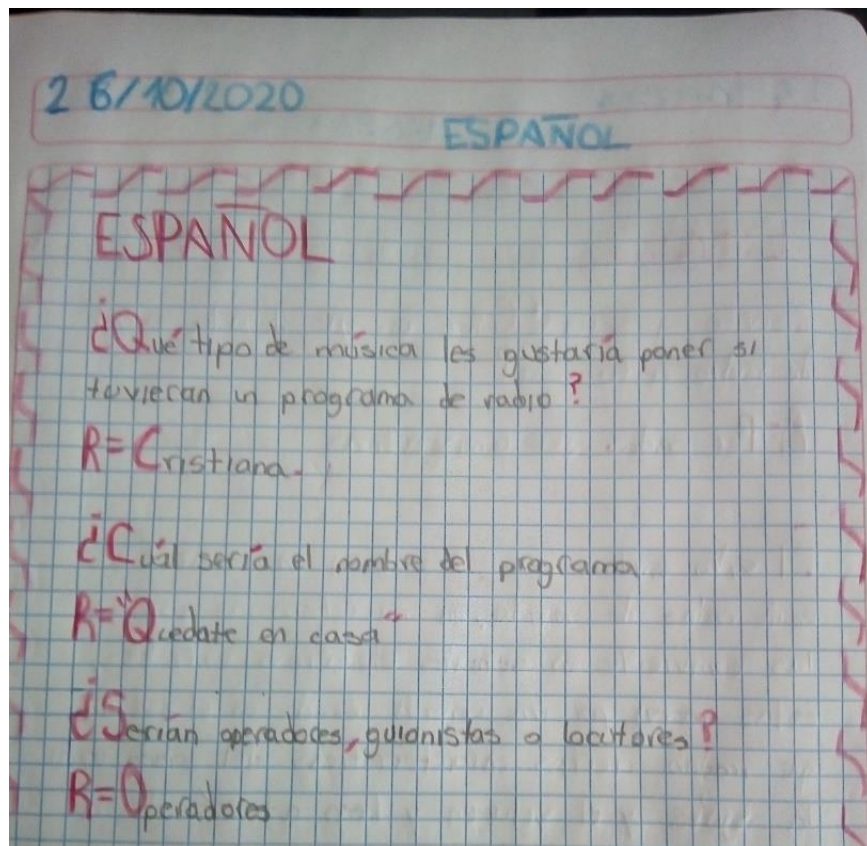 26/10/2020
ESPAÑOL
ESPAÑOL
¿Qué tipo de música les gustaría poner si
tuvieran un programa de radio?
R=Cristiana.
¿Cuál sería el nombre del programa
R="Quedate en casa"
¿Serían operadores, guionistas o locutores?
R=Operadores